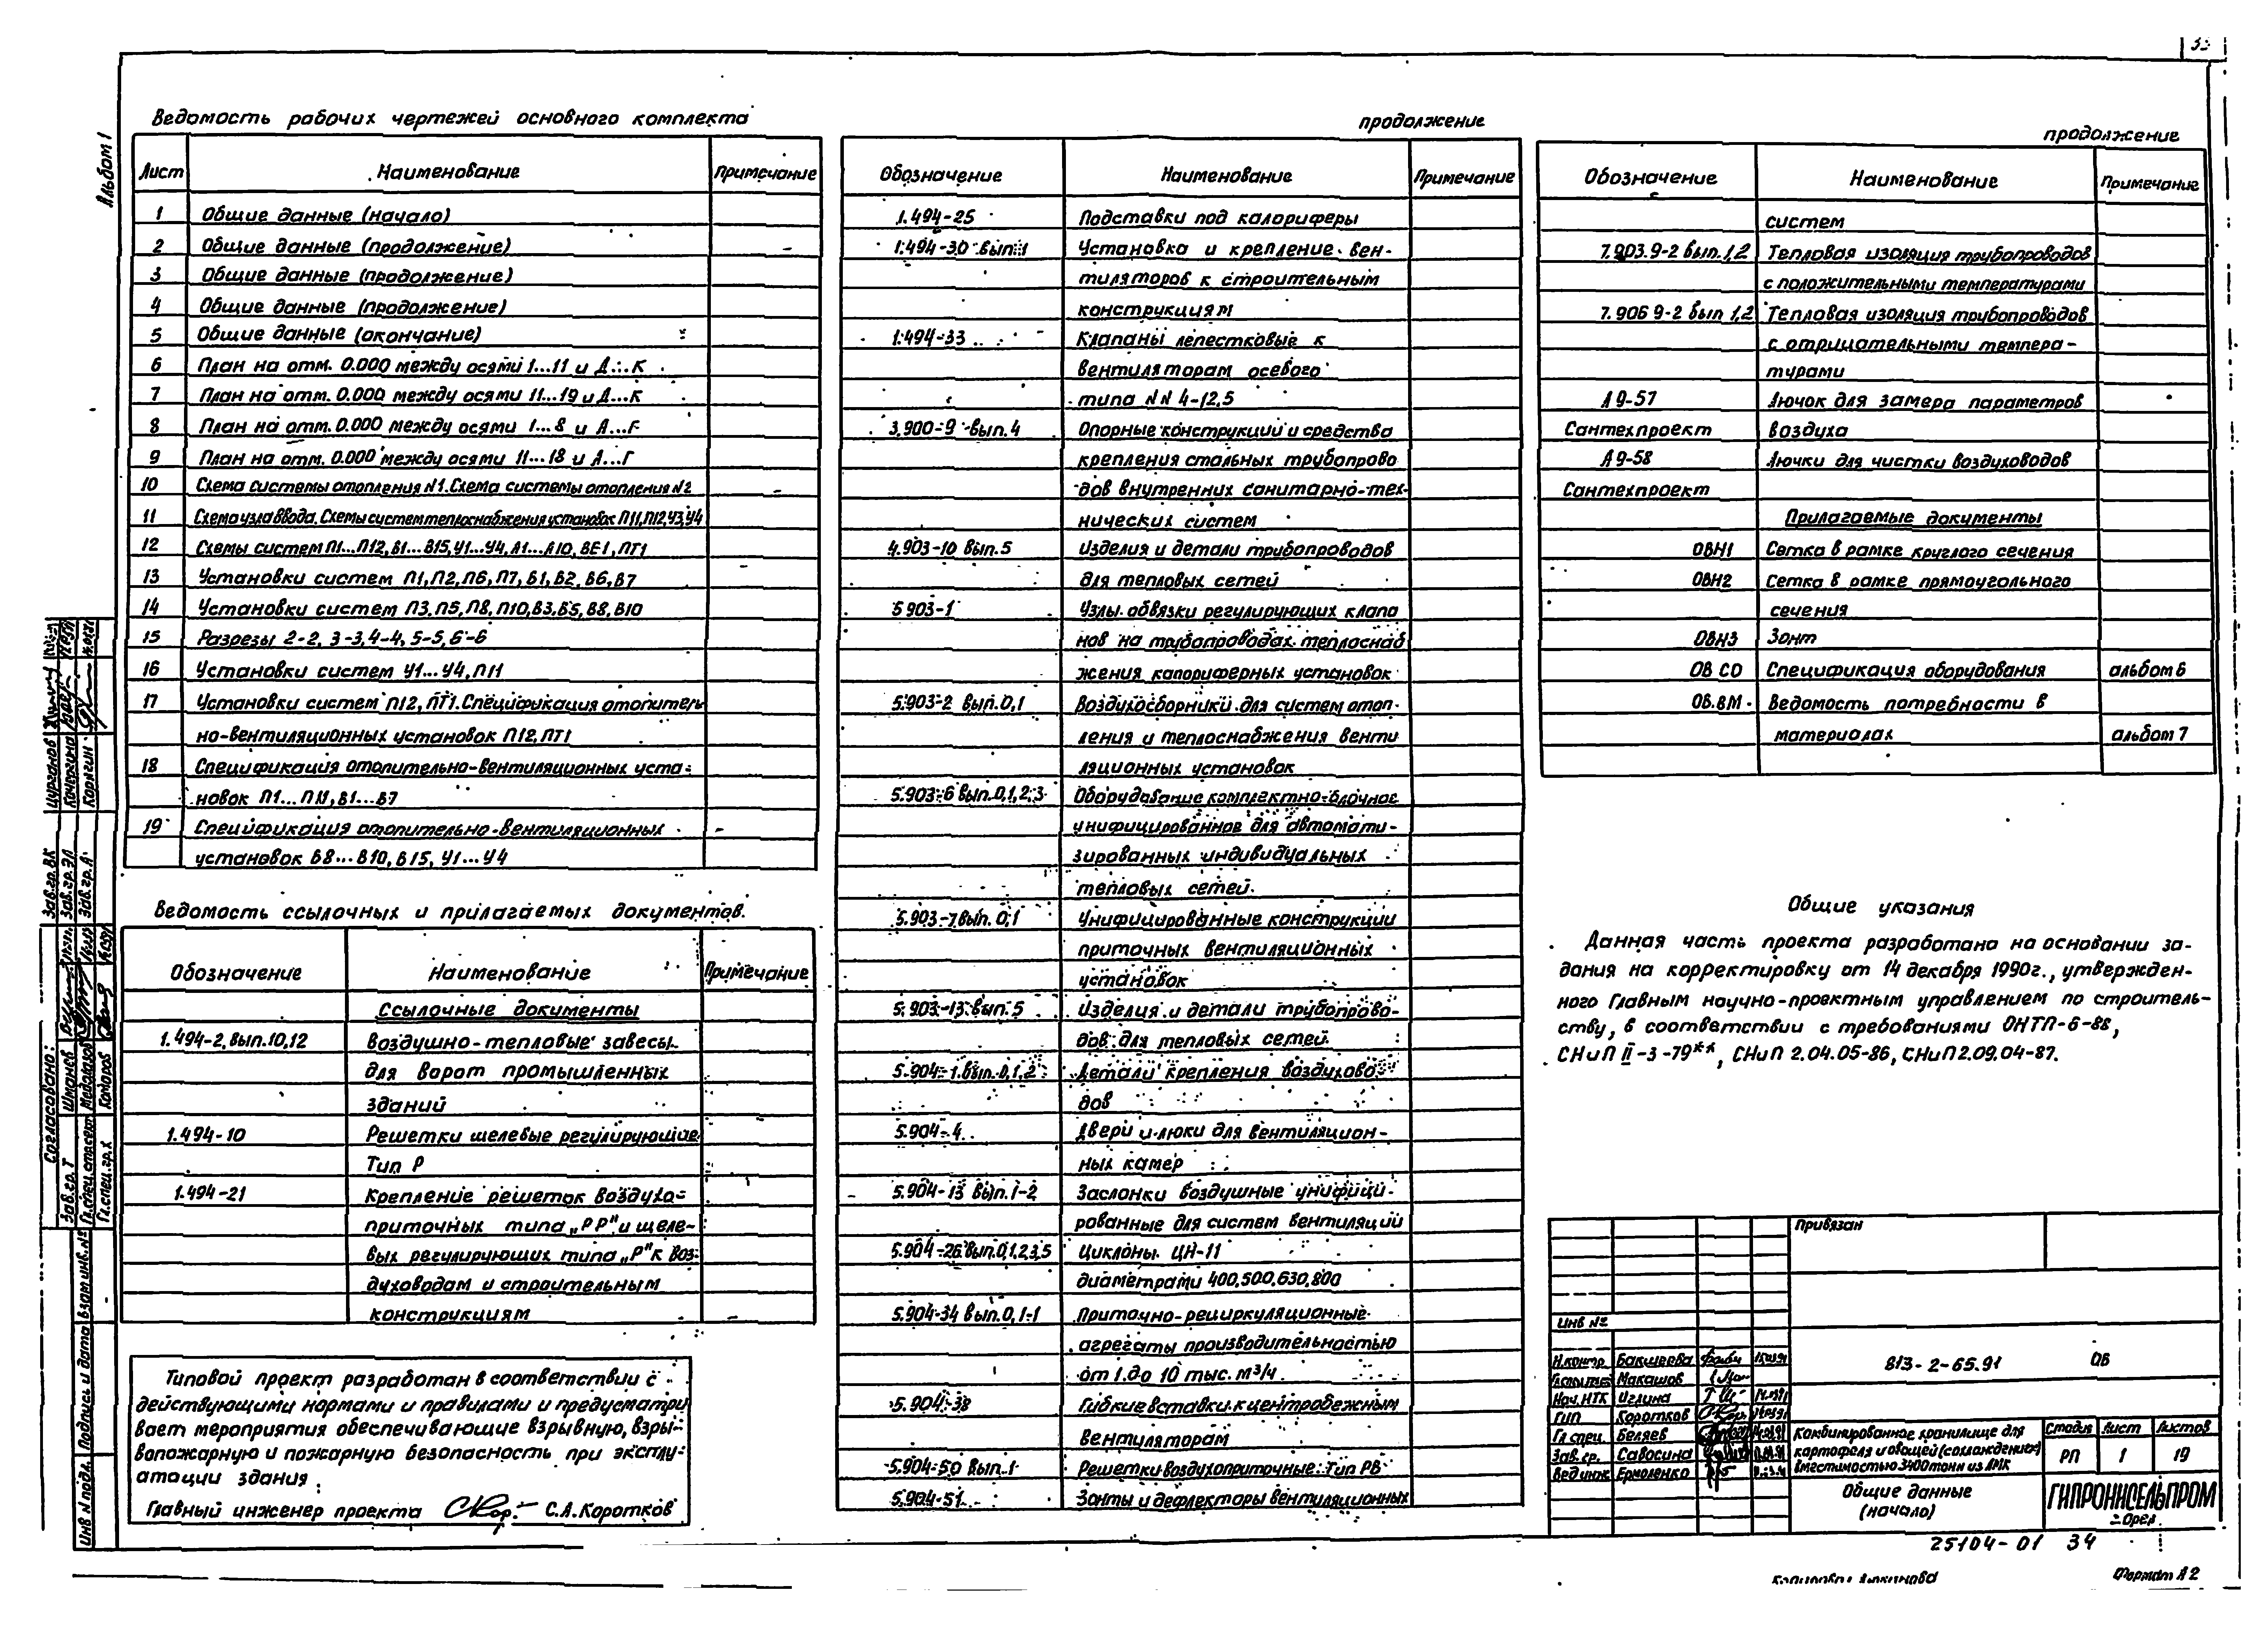 Альбом 1
Ведомость рабочих чертежей основного комплекта
Лист Наименование Примечание
1 Общие данные (начало)
2 Общие данные (продолжение)
3 Общие данные (продолжение)
4 Общие данные (продолжение)
5 Общие данные (окончание)
6 План на отм. 0.000 между осями 1...11 и Д...К
7 План на отм. 0.000 между осями 11...19 и Д...К
8 План на отм. 0.000 между осями 1...8 и А...Г
9 План на отм. 0.000 между осями 11...18 и А...Г
10 Схема системы отопления N1. Схема системы отопления N2
11 Схема узла ввода. Схемы систем теплоснабжения установок П11, П12, У3, У4
12 Схемы систем П1...П12, В1...В15, У1...У4, А1...А10, ВЕ1, ПТ1
13 Установки систем П1, П2, П6, П7, В1, В2, В6, В7
14 Установки систем П3, П5, П8, П10, В3, В5, В8, В10
15 Разрезы 2-2, 3-3, 4-4, 5-5, 6-6
16 Установки систем У1...У4, П11
17 Установки систем П12, ПТ1. Спецификация отопитель
но-вентиляционных установок П12, ПТ1
18 Спецификация отопительно-вентиляционных уста-
новок П1...П11, В1...В7
19 Спецификация отопительно-вентиляционных
установок В8...В10, В15, У1...У4
Ведомость ссылочных и прилагаемых документов.
Обозначение Наименование Примечание
Ссылочные документы
1.494-2, вып. 10,12 Воздушно-тепловые завесы
для ворот промышленных
зданий
1.494-10 Решетки щелевые регулирующие
Тип Р
1.494-21 Крепление решеток воздухо-
приточных типа „РР" и щеле-
вых регулирующих типа „Р" к воз-
духоводам и строительным
конструкциям
Типовой проект разработан в соответствии с
действующими нормами и правилами и предусматри
вает мероприятия обеспечивающие взрывную, взры-
вопожарную и пожарную безопасность при эксплу-
атации здания.
Главный инженер проекта С.А. Коротков
продолжение
Обозначение Наименование Примечание
1.494-25 Подставки под калориферы
1.494-30 вып. 1 Установка и крепление вен-
тиляторов к строительным
конструкциям
1.494-33 Клапаны лепестковые к
вентиляторам осевого
типа NN 4-12,5
3.900-9 вып. 4 Опорные конструкции и средства
крепления стальных трубопрово
дов внутренних санитарно-тех-
нических систем
4.903-10 вып. 5 Изделия и детали трубопроводов
для тепловых сетей
5.903-1 Узлы обвязки регулирующих клапа
нов на трубопроводах теплоснаб
жения калориферных установок
5.903-2 вып. 0,1 Воздухосборники для систем отоп-
ления и теплоснабжения венти
ляционных установок
5.903-6 вып. 0,1,2,3 Оборудование комплектно-блочное
унифицированное для автомати-
зированных индивидуальных
тепловых сетей.
5.903-7 вып. 0,1 Унифицированные конструкции
приточных вентиляционных
установок
5.903-13 вып. 5 Изделия и детали трубопрово-
дов для тепловых сетей
5.904-1 вып. 0,1,2 Детали крепления воздухово-
дов
5.904-4 Двери и люки для вентиляцион-
ных камер
5.904-13 вып. 1-2 Заслонки воздушные унифици-
рованные для систем вентиляций
5.904-26 вып. 0,1,2,3,5 Циклоны ЦН-11
диаметрами 400, 500, 630, 800
5.904-34 вып. 0,1-1 Приточно-рециркуляционные
агрегаты производительностью
от 1 до 10 тыс. м³/ч
5.904-38 Гибкие вставки к центробежным
вентуляторам
5.904-50 вып. 1 Решетки воздухоприточные. Тип РВ
5.904-51 Зонты и дефлекторы вентиляционных
продолжение
Обозначение Наименование Примечание
систем
7.903.9-2 вып. 1,2 Тепловая изоляция трубопроводов
с положительными температурами
7.906 9-2 вып 1,2 Тепловая изоляция трубопроводов
с отрицательными темпера-
турами
А9-57 Лючок для замера параметров
Сантехпроект воздуха
А9-58 Лючки для чистки воздуховодов
Сантехпроект
Прилагаемые документы
ОВН1 Сетка в рамке круглого сечения
ОВН2 Сетка в рамке прямоугольного
сечения
ОВН3 Зонт
ОВ СО Спецификация оборудования альбом 6
ОВ.ВМ Ведомость потребности в
материалах альбом 7
Общие указания
Данная часть проекта разработана на основании за-
дания на корректировку от 14 декабря 1990г., утвержден-
ного Главным научно-проектным управлением по строитель-
ству, в соответствии с требованиями ОНТП-6-88,
СНиП II-3-79**, СНиП 2.04.05-86, СНиП 2.09.04-87.
Привязан
Инв №
Н.контр. Бакшеева
Макашов
Нач. НТК Иглина
ГИП Коротков
Гл спец. Беляев
Зав. гр. Савосина
Вед инж Ермоленко
813-2-65.91 ОВ
Комбинированное хранилище для
картофеля и овощей (с охлаждением)
вместимостью 3400 тонн из ЛМК
Стадия Лист Листов
РП 1 19
Общие данные
(начало)
ГИПРОНИСЕЛЬПРОМ
г. Орел
25104-01 34
Формат А2
Согласовано:
Зав. гр. Т Шканов
Гл. спец. гр. х Кондоров
Зав. гр. ВК Цурганов
Зав. гр. ЭЛ Кочергина
Зав. гр. А. Корягин
Инв N подл. Подпись и дата Взам инв. №